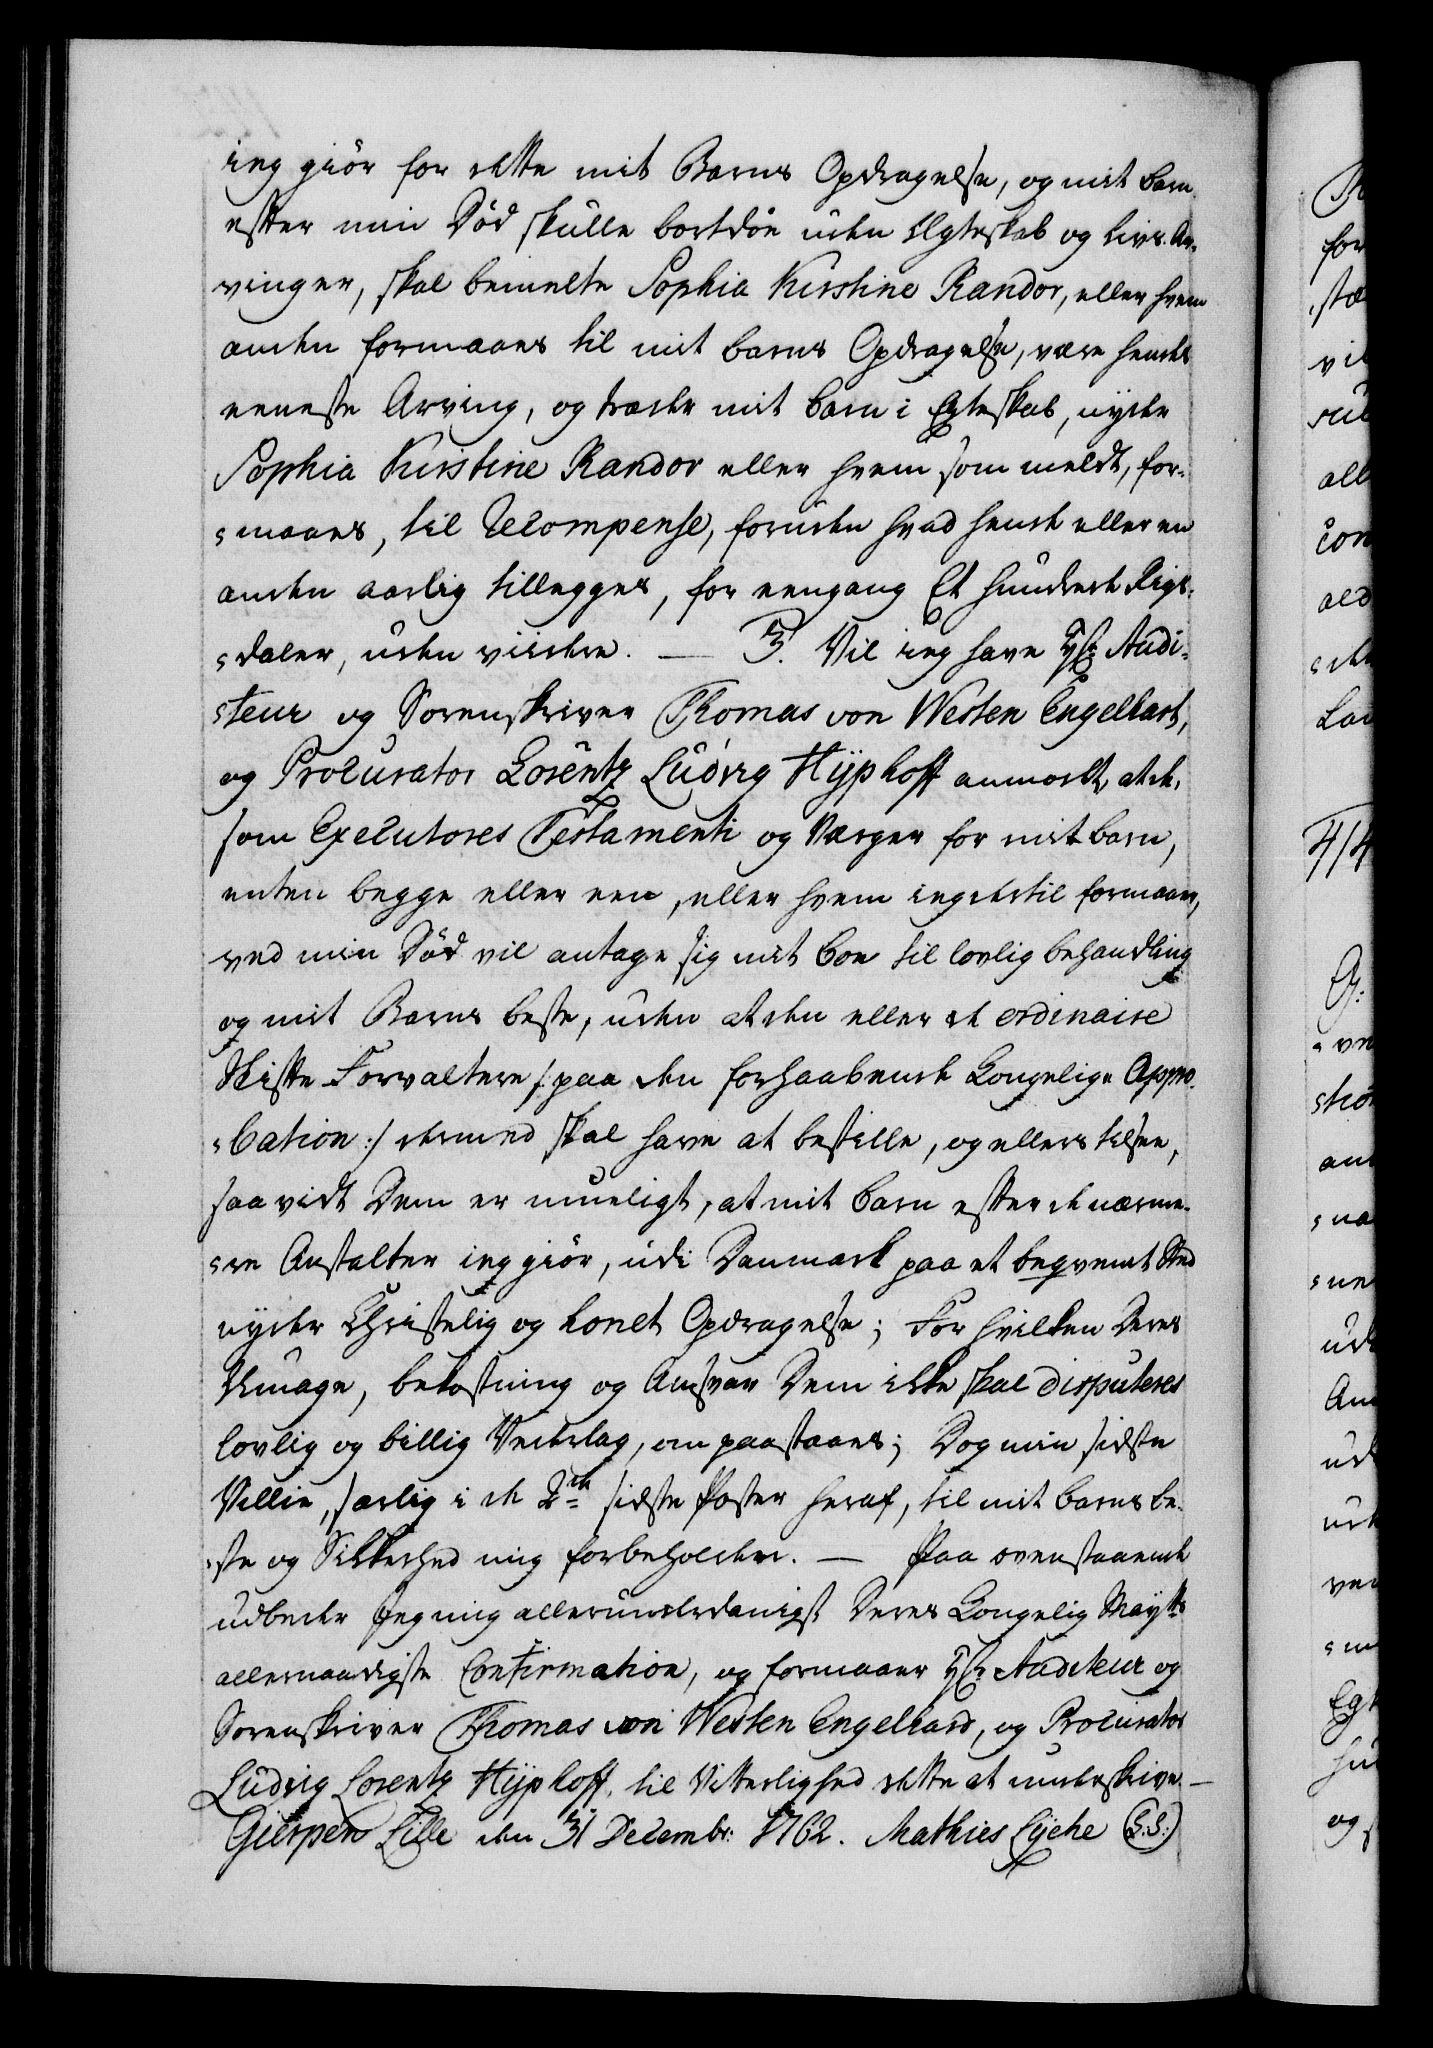 ieg giör for dette mit Barns Opdragelse, og mit barn
efter min Död skulle bortdöe uden Egteskab og Livs-Ar-
vinger, skal bemelte Sophia Kirstine Randor, eller hvem
anden formaaes til mit barns Opdragelse, være hendes
eeneste Arving, og træder mit barn i Egteskab, nyder
Sophia Kirstine Randor eller hvem som meldt, for-
maaes, til Recompense, foruden hvad hende eller en
anden aarlig tillegges, for eengang Et hundrede Rigs-
daler, uden viidere. — 3. Vil ieg have Hr: Audi-
teur og Sorenskriver Thomas von Westen Engelhart,
og Procurator Lorentz Ludvig Hÿphoff anmodet, at de,
som Executores Testamenti og Værger for mit barn,
enten begge eller een, eller hvem ieg dertil formaaer,
ved min Död vil antage sig mit boe til lovlig behandling
og mit Barns beste, uden at den eller de ordinaire
Skifte Forvaltere /: paa den forhaabende Kongelige Appro-
bation :/ dermed skal have at bestille, og ellers tilsee,
saavidt Dem er mueligt, at mit barn efter de nærme-
re Anstalter ieg giör, udi Danmark paa et beqvemt Sted
nyder Christelig og honet Opdragelse; For hvilken Deres
Umage, bekostning og Ansvar Dem ikke skal disputeres
lovlig og billig Vederlag, om paastaaes; Dog min sidste
Villie, særlig i de 2de sidste Poster heraf, til mit barns be-
ste og Sikkerhed mig forbeholden. — Paa ovenstaaende
udbeder Jeg mig allerunderdanigst Deres Kongelig Mayts
allernaadigste Confirmation, og formaaer Hr: Auditeur og
Sorenskriver Thomas von Westen Engelhard, og Procurator
Ludvig Lorentz Hÿphoff, til Vitterlighed dette at underskrive. —
Gierpen Lille den 31 Decembr: 1762. Mathies Lÿche (L:S:)